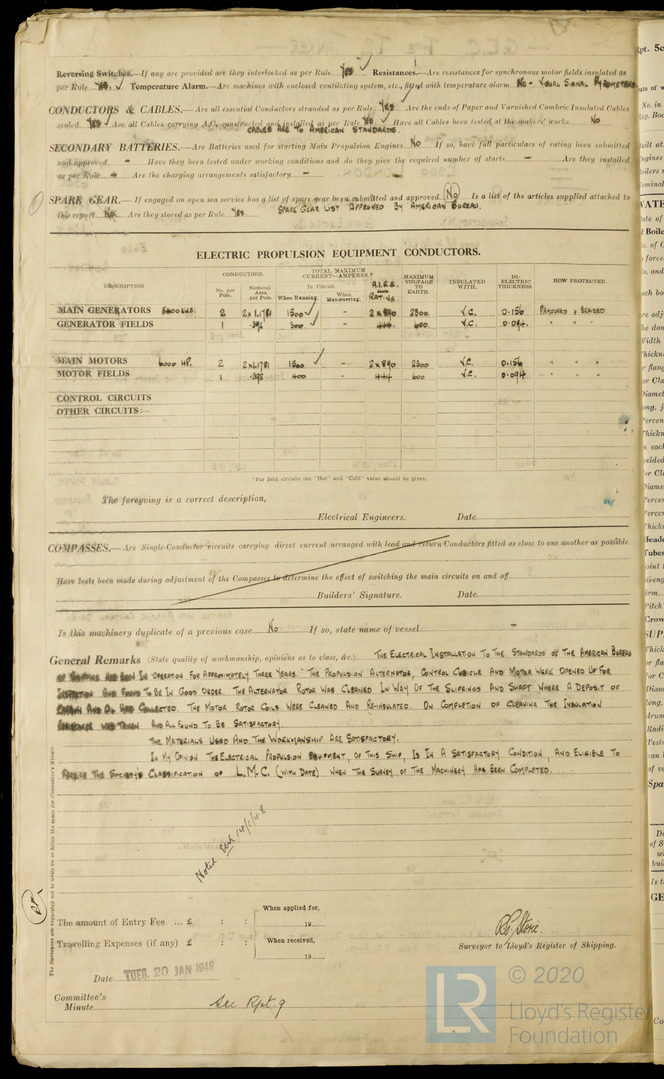 Reversing Switches.—If any are provided are they interlocked as per Rule Yes Resistances.—Are resistances for synchronous motor fields insulated as
per Rule Yes. Temperature Alarm.—Are machines with enclosed ventilating system, etc., fitted with temperature alarm No - Visual Signal Pyrometers
CONDUCTORS & CABLES.—Are all essential Conductors stranded as per Rule Yes Are the ends of Paper and Varnished Cambric Insulated Cables
sealed Yes Are all Cables carrying A.C. constructed and installed as per Rule No Have all Cables been tested at the makers' works No
Cables are to American Standards.
SECONDARY BATTERIES.—Are Batteries used for starting Main Propulsion Engines No If so, have full particulars of rating been submitted
and approved - Have they been tested under working conditions and do they give the required number of starts - Are they installed
as per Rule - Are the charging arrangements satisfactory. -
SPARE GEAR.—If engaged on open sea service has a list of spare gear been submitted and approved No Is a list of the articles supplied attached to
this report No. Are they stored as per Rule Yes. Spare Gear List Approved By American Bureau.
ELECTRIC PROPULSION EQUIPMENT CONDUCTORS.
DESCRIPTION CONDUCTORS. No. per Pole. Nominal Area per Pole. TOTAL MAXIMUM CURRENT—AMPERES In Circuit. When Running. When Manœuvring. A.I.E.E. MAXIMUM VOLTAGE TO EARTH. INSULATED WITH. DI-ELECTRIC THICKNESS HOW PROTECTED.
MAIN GENERATORS 2 2x1.1781 1500 - 2x890 2300. V.C. 0.156 Armoured & Braided.
GENERATOR FIELDS 1 .392 300 - 600 V.C. 0.094 " " "
MAIN MOTORS 6000 HP. 2 2x1.1781 1500 - 2x890 2300 V.C. 0.156 " " "
MOTOR FIELDS 1 .392 400 - 600 V.C. 0.094 " " "
CONTROL CIRCUITS
OTHER CIRCUITS:—
*For field circuits the "Hot" and "Cold" value should be given.
The foregoing is a correct description,
Electrical Engineers. Date
COMPASSES.—Are Single-Conductor circuits carrying direct current arranged with lead and return Conductors fitted as close to one another as possible
Have tests been made during adjustment of the Compasses to determine the effect of switching the main circuits on and off
Builders' Signature. Date
Is this machinery duplicate of a previous case No If so, state name of vessel -
General Remarks (State quality of workmanship, opinions as to class, &c.) The Electrical Installation To The Standards of The American Bureau
of Shipping Has Been In Operation For Approximately Three Years. The Propulsion Alternator, Control Cubicle And Motor Were Opened Up For
Inspection And Found To Be In Good Order. The Alternator Rotor Was Cleaned In Way Of The Sliprings And Shaft Where A Deposit of
Carbon And Oil Had Collected. The Motor Rotor Coils Were Cleaned And Reinsulated. On Completion of Cleaning The Insulation
Resistance Was Taken And All Found To Be Satisfactory.
The Materials Used And The Workmanship Are Satisfactory.
In My Opinion The Electrical Propulsion Equipment, Of This Ship, Is In A Satisfactory Condition, And Eligible To
Receive The Society's Classification of L.M.C. (With Date) When The Survey of The Machinery Has Been Completed.
Noted 14/1/48
The Surveyors are requested not to write on or below the space for Committee's Minute.
The amount of Entry Fee ... £ : : When applied for, 19
Travelling Expenses (if any) £ : : When received, 19
Surveyor to Lloyd's Register of Shipping.
Date TUES. 20 JAN 1948
Committee's Minute See Rpt. 9
LR © 2020
Lloyd's Register
Foundation